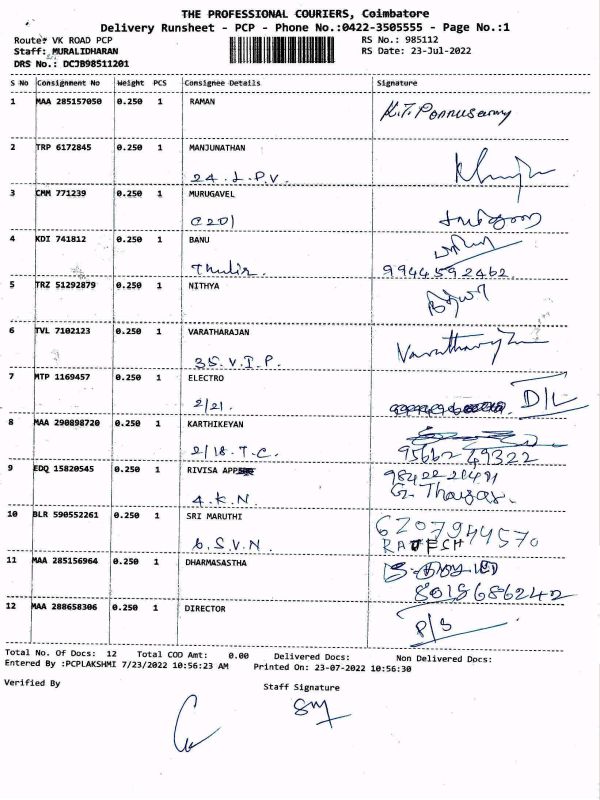 THE PROFESSIONAL COURIERS, Coimbatore
Delivery Runsheet - PCP - Phone No.:0422-3505555 - Page No.:1
Route: VK ROAD PCP RS No.: 985112
Staff: MURALIDHARAN RS Date: 23-Jul-2022
DRS No.: DCJB98511201
S No Consignment No Weight PCS Consignee Details Signature
1 MAA 285157050 0.250 1 RAMAN
K.T. Ponnusamy
2 TRP 6172845 0.250 1 MANJUNATHAN
24. L.P.V.
3 CMM 771239 0.250 1 MURUGAVEL
C201
4 KDI 741812 0.250 1 BANU
Thulir. 9944592462
5 TRZ 51292879 0.250 1 NITHYA
6 TVL 7102123 0.250 1 VARATHARAJAN
35. V.I.P.
7 MTP 1169457 0.250 1 ELECTRO
2/21. D/L
8 MAA 290898720 0.250 1 KARTHIKEYAN
2/18. T.C. 95662 49322
9 EDQ 15820545 0.250 1 RIVISA
4. K.N
10 BLR 590552261 0.250 1 SRI MARUTHI 6207944570
6. S.V.N.
11 MAA 285156964 0.250 1 DHARMASASTHA
8015686242
12 MAA 288658306 0.250 1 DIRECTOR
P/S
Total No. Of Docs: 12 Total COD Amt: 0.00 Delivered Docs: Non Delivered Docs:
Entered By :PCPLAKSHMI 7/23/2022 10:56:23 AM Printed On: 23-07-2022 10:56:30
Verified By Staff Signature